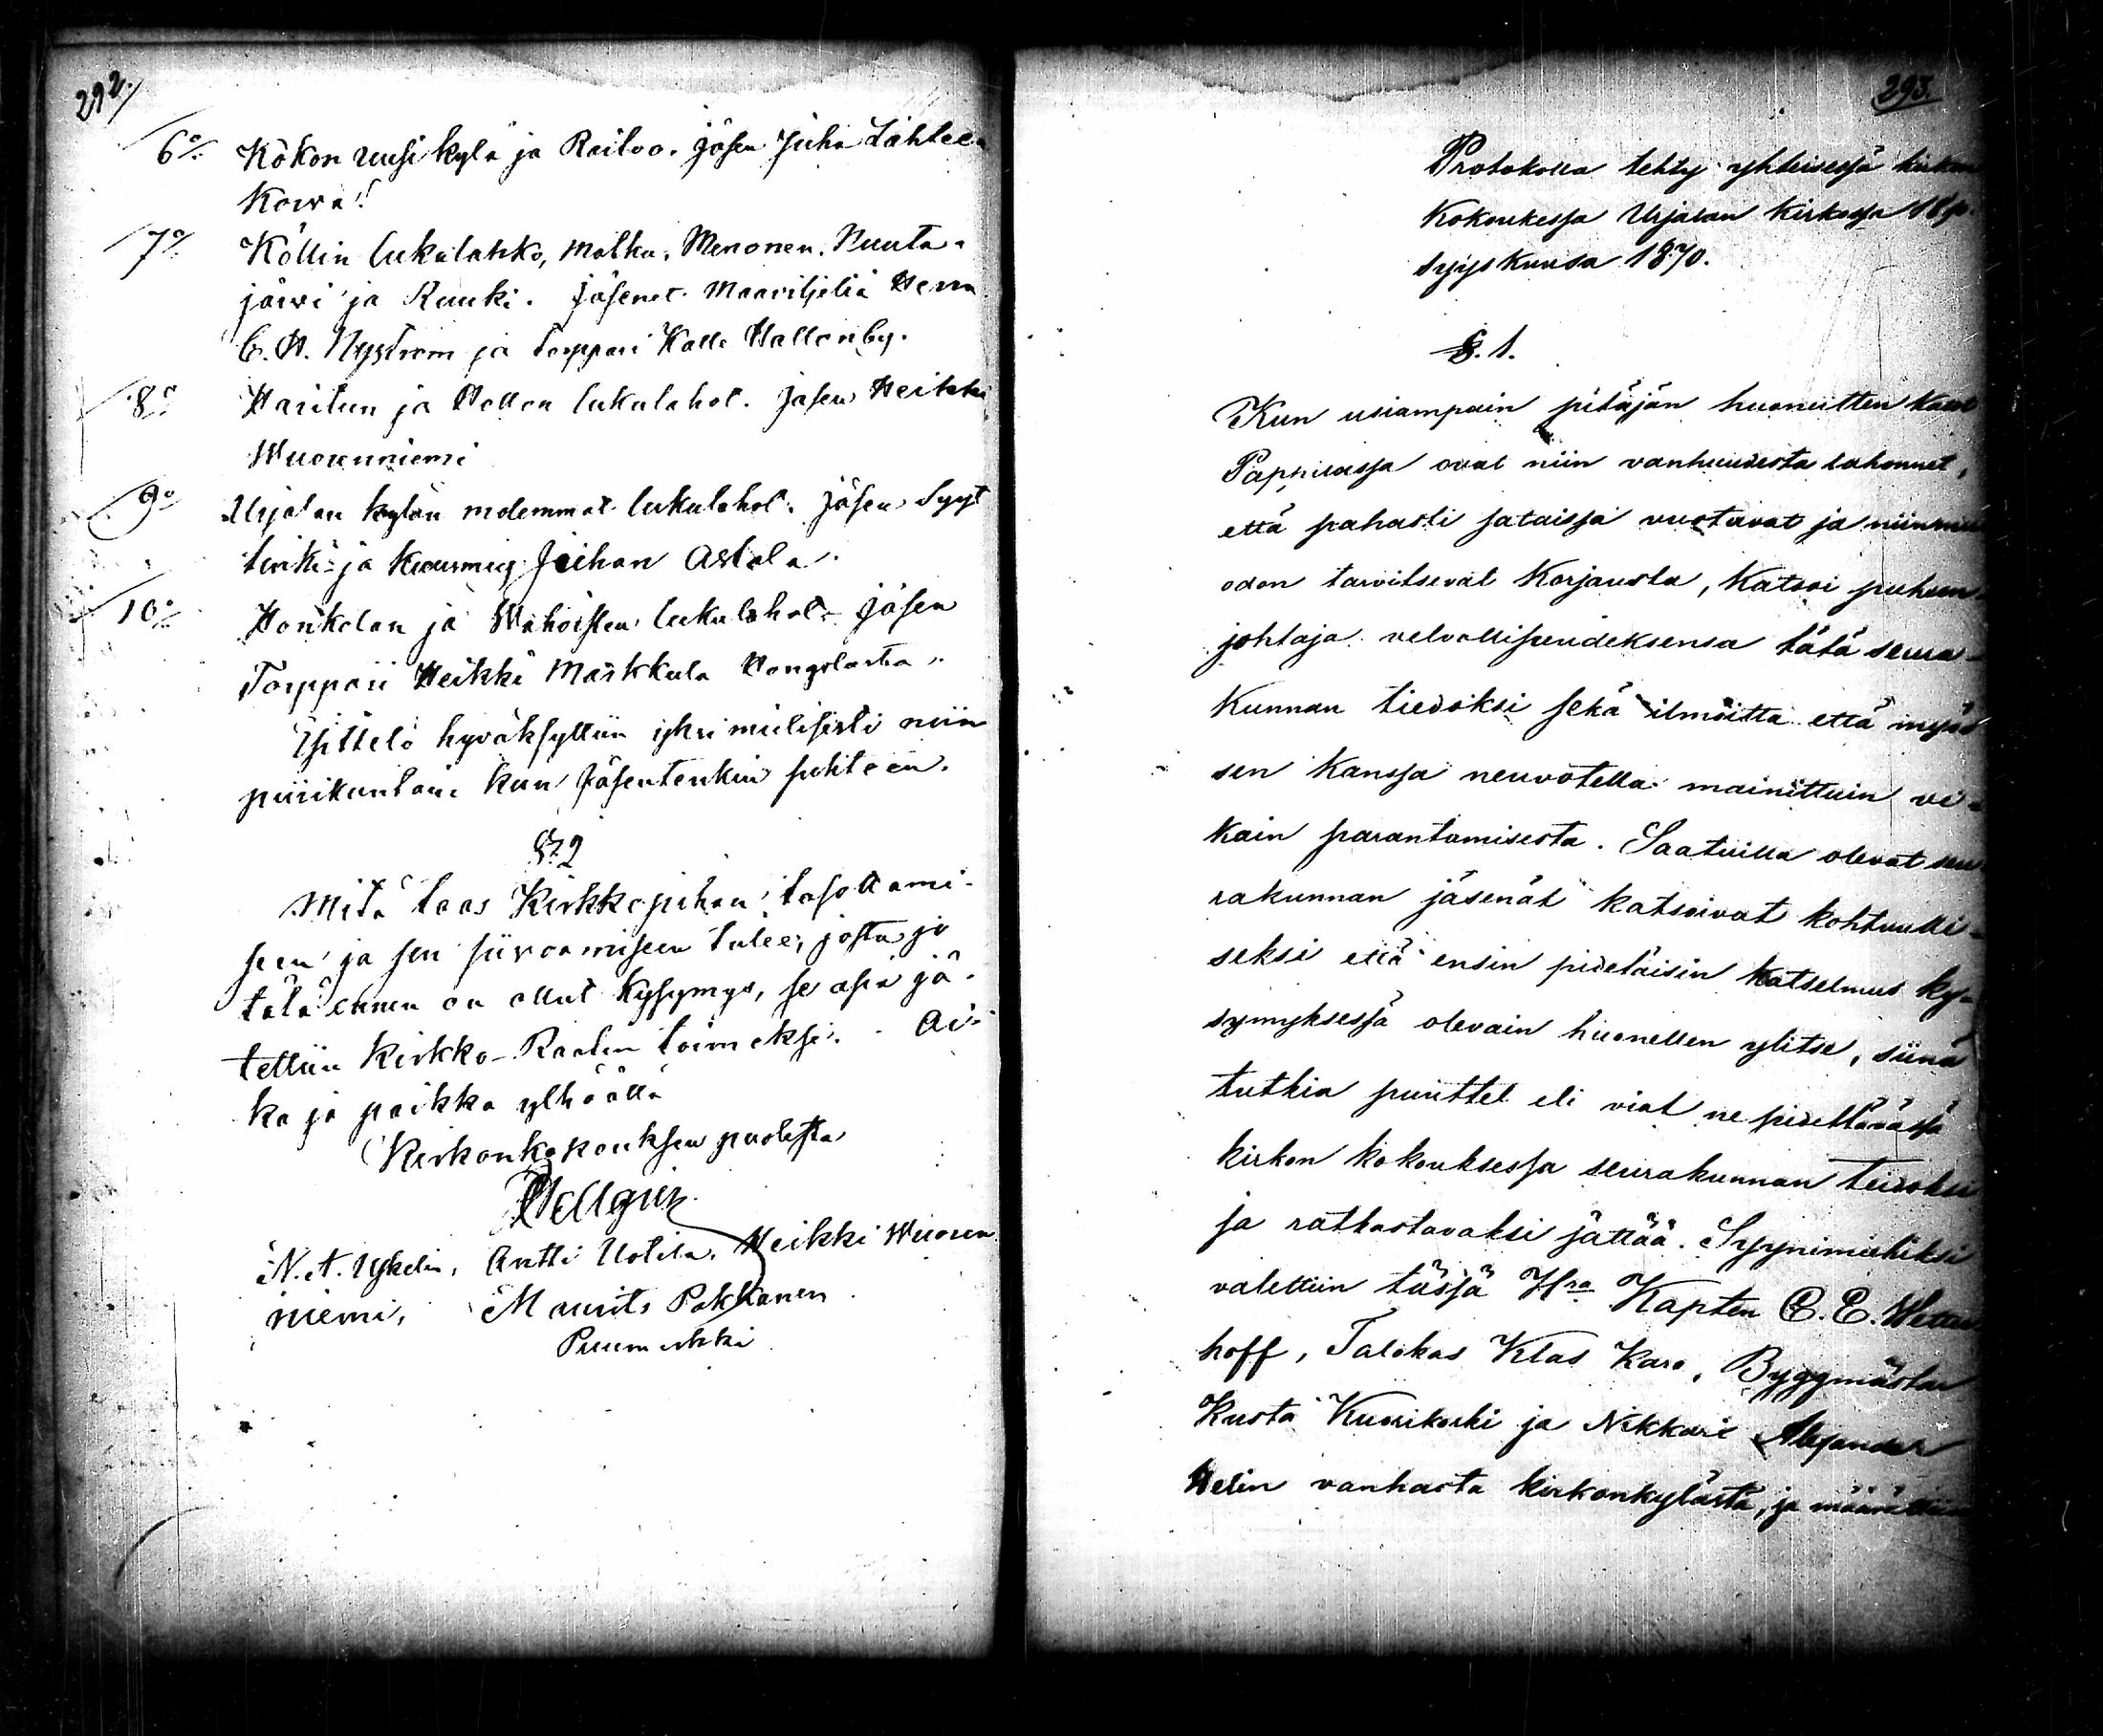 292.
6o/. Kökon uusi kylä ja Raitoo. Jäsen Juha Lähtee-
Korva.
7o/. Köllin lukulahko, Matku, Menonen, Nuuta-
järwi ja Ruuki. Jäsenet Maaviljeliä Herra
C. H. Nyström ja Torppari Kalle Hallonby.
8o/. Haritun ja Hallon lukulahot. Jäsen Heikki
Wuorenniemi
9o/. Urjalan kylän molemmat lukulahot. Jäsen Syyt
tinki ja Juhan Astala.
10o/. Honkolan ja Wahoisten lukulahot. Jäsen
Torppari Heikki Markkula Hongolasta.
Esittelö hyväksyttiin yksimielisesti niin
piirikuntain kun Jäsentenkin suhteen.
§. 2
Mitä taas Kirkkopihan tasottami-
seen ja sen siivoamiseen tulee, josta jo
tätä ennen on ollut kysymys, se asia jä-
tettiin Kirkko-Raadin toimeksi. Ai-
ka ja paikka ylhäällä
Kirkonkokouksen puolesta
N. A. Ugkelin, Antti Uotila, Heikki Wuoren
niemi, Maurits Pakkanen
Puumerkki
293.
Protokolla tehty yhteisessä kirkon
Kokouksessa Urjalan kirkossa 18 p.
Syyskuusa 1870.
§. 1.
Kun usiampain pitäjän huonetten katot
Pappilassa ovat niin vanhuudesta lahonnet,
että pahasti sataissa vuotavat ja niinmuo
odon tarvitsevat Korjausta, Katsoi puheen-
johtaja velvollisuudeksensa tätä seura-
kunnan tiedoksi sekä ilmoitta että myös
sen Kanssa neuvotella mainittuin vi-
kain parantamisesta. Saatuilla olevat seu
rakunnan jäsenät katsoivat kohtuulli-
seksi että ensin pidetäisin katselmus ky-
symyksessä olevain huonetten ylitse, siinä
tutkia puuttet eli viat ne pidettävässä
kirkon kokouksessa seurakunnan tiedoksi
ja ratkastavaksi jättää. Syynimiehiksi
valittiin tässä Hra Kapten C. E. Wetter
hoff, Talokas Klas Karo, Byggmästar
Kusta Kuosikoski ja Nikkari Alexander
Helin vanhasta kirkonkylästä, ja määrättiin